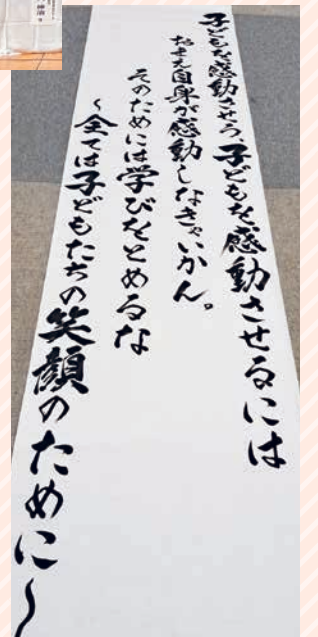 子どもを感動させろ、子どもを感動させるには
おまえ自身が感動しなきゃいかん。
そのためには学びをとめるな
～全ては子どもたちの笑顔のために～